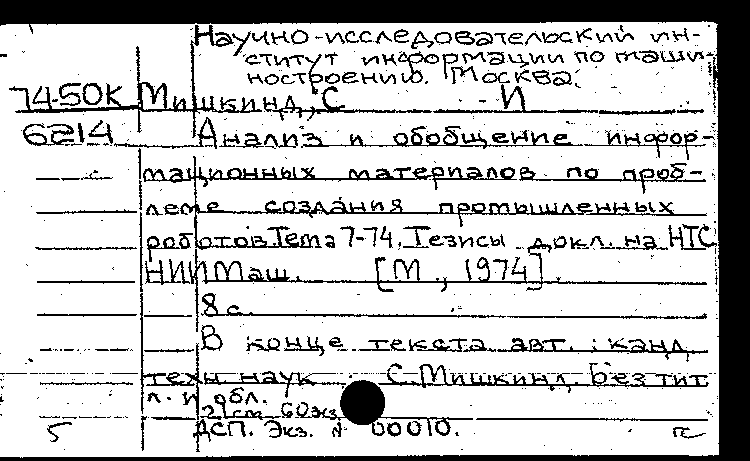 Научно-исследовательский ин-
ститут информации по маши-
ностроению. Москва.
74-50К Мишкинд, С И
6214 Анализ и обобщение инфор-
мационных материалов по проб-
леме создания промышленных
роботов Тема 7-74. Тезисы докл. на НТС
НИИМаш. [М., 1974].
8 с.
В конце текста авт.: канд
техн наук С. Мишкинд. Без тит
л. и обл.
21 см 60 экз
ДСП. Экз. № 00010.
5 пс